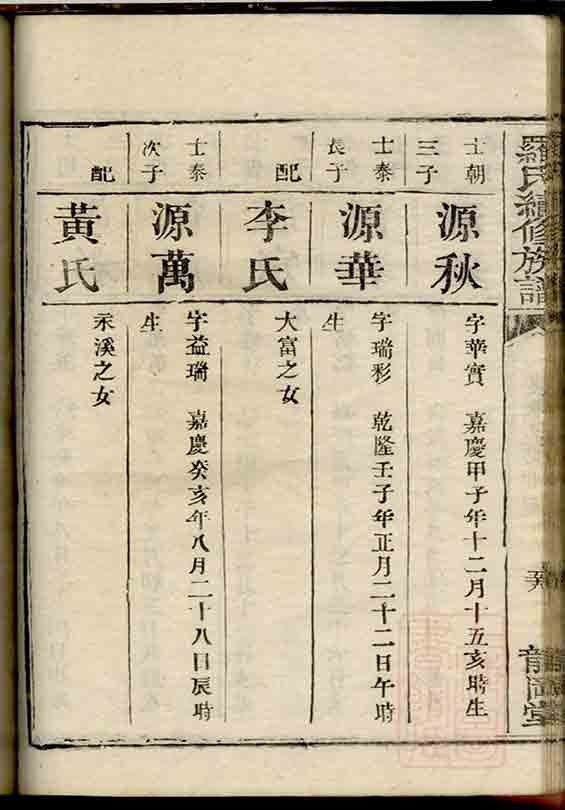 羅氏續修族譜
士朝
三子
源秋
字華實 嘉慶甲子年十二月十五亥時生
士泰
長子
源華
字瑞彩 乾隆壬子年正月二十二日午時
生
配
李氏
大富之女
士泰
次子
源萬
字益瑞 嘉慶癸亥年八月二十八日辰時
生
配
黃氏
永溪之女